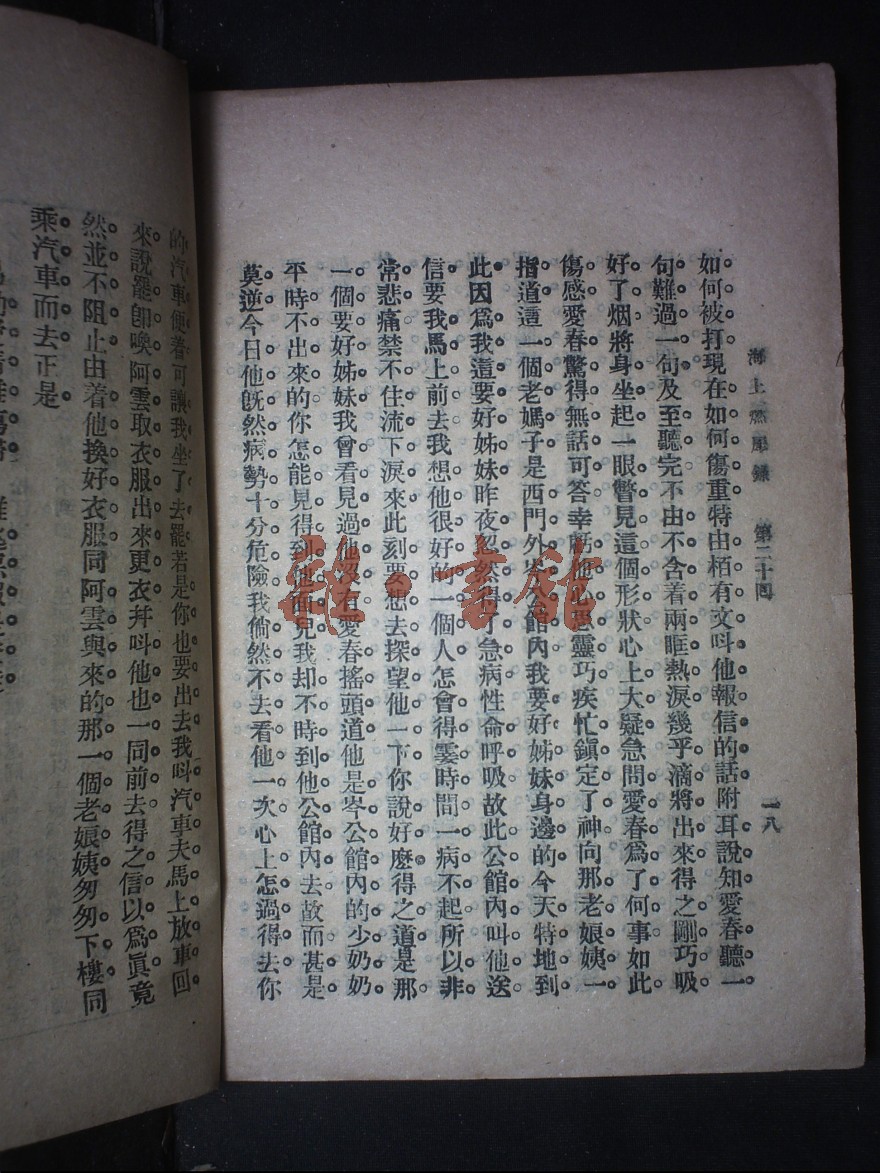 海上燃犀錄 第二十四 一八
如何被打現在如何傷重特由栢有文呌他報信的話附耳說知愛春聽一
句難過一句及至聽完不由不含着兩眶熱淚幾乎滴將出來得之剛巧吸
好了烟將身坐起一眼瞥見這個形狀心上大疑急問愛春爲了何事如此
傷感愛春驚得無話可答幸虧他心思靈巧疾忙鎭定了神向那老娘姨一
指道這一個老媽子是西門外岑公館內我要好姊妹身邊的今天特地到
此因爲我這要好姊妹昨夜忽然得了急病性命呼吸故此公館內叫他送
信要我馬上前去我想他很好的一個人怎會得霎時間一病不起所以非
常悲痛禁不住流下淚來此刻要想去探望他一下你說好麼得之道是那
一個要好姊妹我曾看見過他沒有愛春搖頭道他是岑公館內的少奶奶
平時不出來的你怎能見得到他面兒我却不時到他公館內去故而甚是
莫逆今日他既然病勢十分危險我倘然不去看他一次心上怎過得去你
的汽車便着可讓我坐了去罷若是你也要出去我呌汽車夫馬上放車回
來說罷卽喚阿雲取衣服出來更衣幷呌他也一同前去得之信以爲眞竟
然並不阻止由着他換好衣服同阿雲與來的那一個老娘姨匆匆下樓同
乘汽車而去正是
龍書館